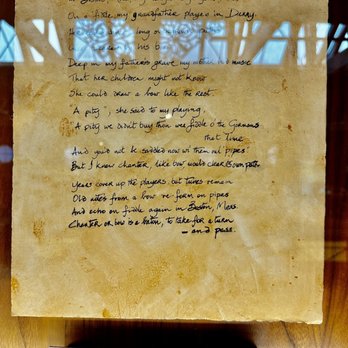 On a fiddle my grandfather played in Derry.
long
his
Deep in my father's grave my mother hid music
That her children might not know
She could draw a bow like the rest.
"A pity", she said to my playing,
"A pity we didn't buy then wee fiddle o the Gormans
that time
And you'd not be saddled now wi them oul 'pipes'
But I knew chanter, like bow would clear its own path.
Years cover up the players, but tunes remain
Old notes from a bow re-form on pipes
And echo on fiddle again in Boston, Mass.
Chanter or bow is a baton, to take for a turn
– and pass.